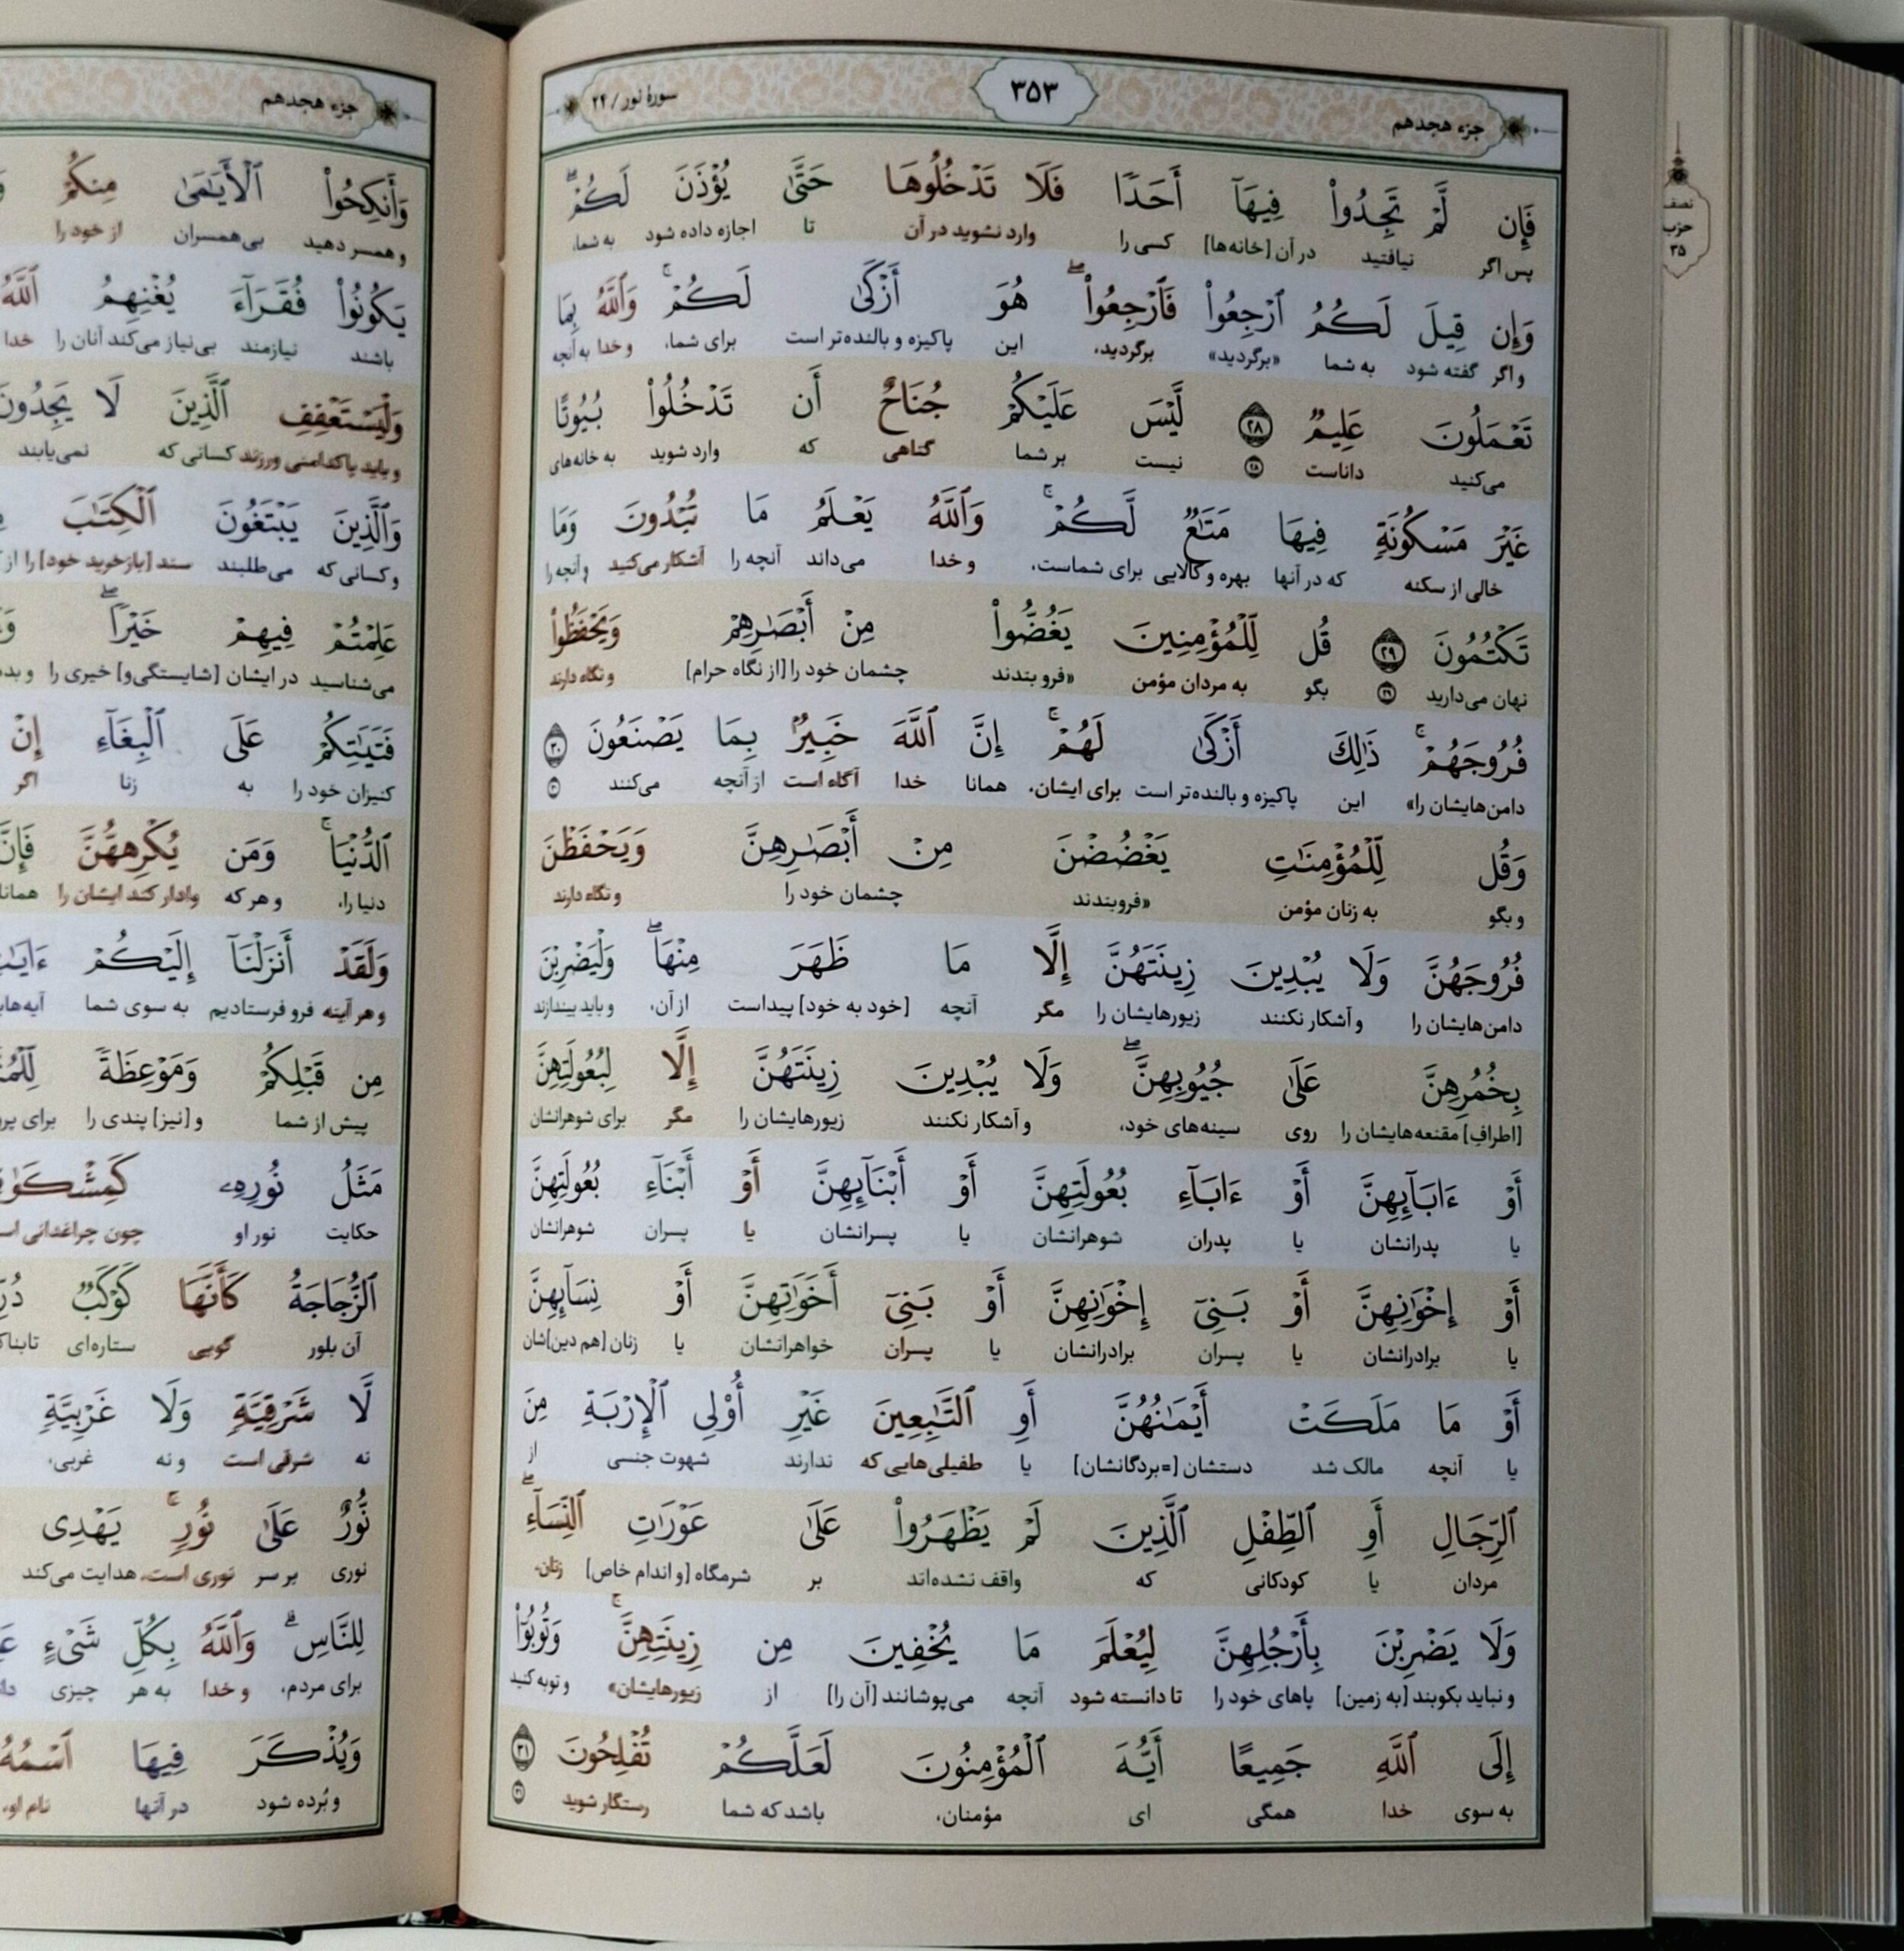 جزء هجدهم
۳۵۳
سورهٔ نور / ۲۴
فَإِن لَّمْ تَجِدُواْ فِيهَآ أَحَدًا فَلَا تَدْخُلُوهَا حَتَّىٰ يُؤْذَنَ لَكُمْۖ
پس اگر نیافتید در آن [خانه‌ها] کسی را وارد نشوید در آن تا اجازه داده شود به شما،
وَإِن قِيلَ لَكُمُ ٱرْجِعُواْ فَٱرْجِعُواْۖ هُوَ أَزْكَىٰ لَكُمْۚ وَٱللَّهُ بِمَا
و اگر گفته شود به شما «برگردید» برگردید، این پاکیزه و بالنده‌تر است برای شما، و خدا به آنچه
تَعْمَلُونَ عَلِيمٌ ۲۸ لَّيْسَ عَلَيْكُمْ جُنَاحٌ أَن تَدْخُلُواْ بُيُوتًا
می‌کنید داناست ۲۸ نیست بر شما گناهی که وارد شوید به خانه‌های
غَيْرَ مَسْكُونَةٍ فِيهَا مَتَٰعٌ لَّكُمْۚ وَٱللَّهُ يَعْلَمُ مَا تُبْدُونَ وَمَا
خالی از سکنه که در آنها بهره و کالایی برای شماست، و خدا می‌داند آنچه را آشکار می‌کنید و آنچه را
تَكْتُمُونَ ۲۹ قُل لِّلْمُؤْمِنِينَ يَغُضُّواْ مِنْ أَبْصَٰرِهِمْ وَيَحْفَظُواْ
نهان می‌دارید ۲۹ بگو به مردان مؤمن «فرو بندند چشمان خود را [از نگاه حرام] و نگاه دارند
فُرُوجَهُمْۚ ذَٰلِكَ أَزْكَىٰ لَهُمْۚ إِنَّ ٱللَّهَ خَبِيرٌۢ بِمَا يَصْنَعُونَ ۳۰
دامن‌هایشان را» این پاکیزه و بالنده‌تر است برای ایشان، همانا خدا آگاه است از آنچه می‌کنند ۳۰
وَقُل لِّلْمُؤْمِنَٰتِ يَغْضُضْنَ مِنْ أَبْصَٰرِهِنَّ وَيَحْفَظْنَ
و بگو به زنان مؤمن «فروبندند چشمان خود را و نگاه دارند
فُرُوجَهُنَّ وَلَا يُبْدِينَ زِينَتَهُنَّ إِلَّا مَا ظَهَرَ مِنْهَاۖ وَلْيَضْرِبْنَ
دامن‌هایشان را و آشکار نکنند زیورهایشان را مگر آنچه [خود به خود] پیداست از آن، و باید بیندازند
بِخُمُرِهِنَّ عَلَىٰ جُيُوبِهِنَّۖ وَلَا يُبْدِينَ زِينَتَهُنَّ إِلَّا لِبُعُولَتِهِنَّ
[اطراف] مقنعه‌هایشان را روی سینه‌های خود، و آشکار نکنند زیورهایشان را مگر برای شوهرانشان
أَوْ ءَابَآئِهِنَّ أَوْ ءَابَآءِ بُعُولَتِهِنَّ أَوْ أَبْنَآئِهِنَّ أَوْ أَبْنَآءِ بُعُولَتِهِنَّ
یا پدرانشان یا پدران شوهرانشان یا پسرانشان یا پسران شوهرانشان
أَوْ إِخْوَٰنِهِنَّ أَوْ بَنِىٓ إِخْوَٰنِهِنَّ أَوْ بَنِىٓ أَخَوَٰتِهِنَّ أَوْ نِسَآئِهِنَّ
یا برادرانشان یا پسران برادرانشان یا پسران خواهرانشان یا زنان [هم دین]شان
أَوْ مَا مَلَكَتْ أَيْمَٰنُهُنَّ أَوِ ٱلتَّٰبِعِينَ غَيْرِ أُوْلِى ٱلْإِرْبَةِ مِنَ
یا آنچه مالک شد دستشان [=بردگانشان] یا طفیلی‌هایی که ندارند شهوت جنسی از
ٱلرِّجَالِ أَوِ ٱلطِّفْلِ ٱلَّذِينَ لَمْ يَظْهَرُواْ عَلَىٰ عَوْرَٰتِ ٱلنِّسَآءِۖ
مردان یا کودکانی که واقف نشده‌اند بر شرمگاه [و اندام خاص] زنان،
وَلَا يَضْرِبْنَ بِأَرْجُلِهِنَّ لِيُعْلَمَ مَا يُخْفِينَ مِن زِينَتِهِنَّۚ وَتُوبُوٓاْ
و نباید بکوبند [به زمین] پاهای خود را تا دانسته شود آنچه می‌پوشانند [آن را] از زیورهایشان» و توبه کنید
إِلَى ٱللَّهِ جَمِيعًا أَيُّهَ ٱلْمُؤْمِنُونَ لَعَلَّكُمْ تُفْلِحُونَ ۳۱
به سوی خدا همگی ای مؤمنان، باشد که شما رستگار شوید ۳۱
نصف
حزب
۳۵
جزء هجدهم
وَأَنكِحُواْ ٱلْأَيَٰمَىٰ مِنكُمْ
و همسر دهید بی‌همسران از خود را
يَكُونُواْ فُقَرَآءَ يُغْنِهِمُ ٱللَّهُ
باشند نیازمند بی‌نیاز می‌کند آنان را خدا
وَلْيَسْتَعْفِفِ ٱلَّذِينَ لَا يَجِدُونَ
و باید پاکدامنی ورزند کسانی که نمی‌یابند
وَٱلَّذِينَ يَبْتَغُونَ ٱلْكِتَٰبَ
و کسانی که می‌طلبند سند [بازخرید خود] را از
عَلِمْتُمْ فِيهِمْ خَيْرًاۖ
می‌شناسید در ایشان [شایستگی و] خیری را
فَتَيَٰتِكُمْ عَلَى ٱلْبِغَآءِ إِنْ
کنیزان خود را به زنا اگر
ٱلدُّنْيَاۚ وَمَن يُكْرِههُّنَّ فَإِنَّ
دنیا را، و هر که وادار کند ایشان را همانا
وَلَقَدْ أَنزَلْنَآ إِلَيْكُمْ
و هر آینه فرو فرستادیم به سوی شما
مِن قَبْلِكُمْ وَمَوْعِظَةً
پیش از شما و [نیز] پندی را برای
مَثَلُ نُورِهِۦ
حکایت نور او چون چراغدانی
ٱلزُّجَاجَةُ كَأَنَّهَا كَوْكَبٌ
آن بلور گویی ستاره‌ای
لَّا شَرْقِيَّةٍ وَلَا غَرْبِيَّةٍ
نه شرقی است و نه غربی،
نُّورٌ عَلَىٰ نُورٍۚ يَهْدِى
نوری بر سر نوری است، هدایت می‌کند
لِلنَّاسِۗ وَٱللَّهُ بِكُلِّ شَىْءٍ
برای مردم، و خدا به هر چیزی
وَيُذْكَرَ فِيهَا ٱسْمُهُ
و بُرده شود در آنها نام او،